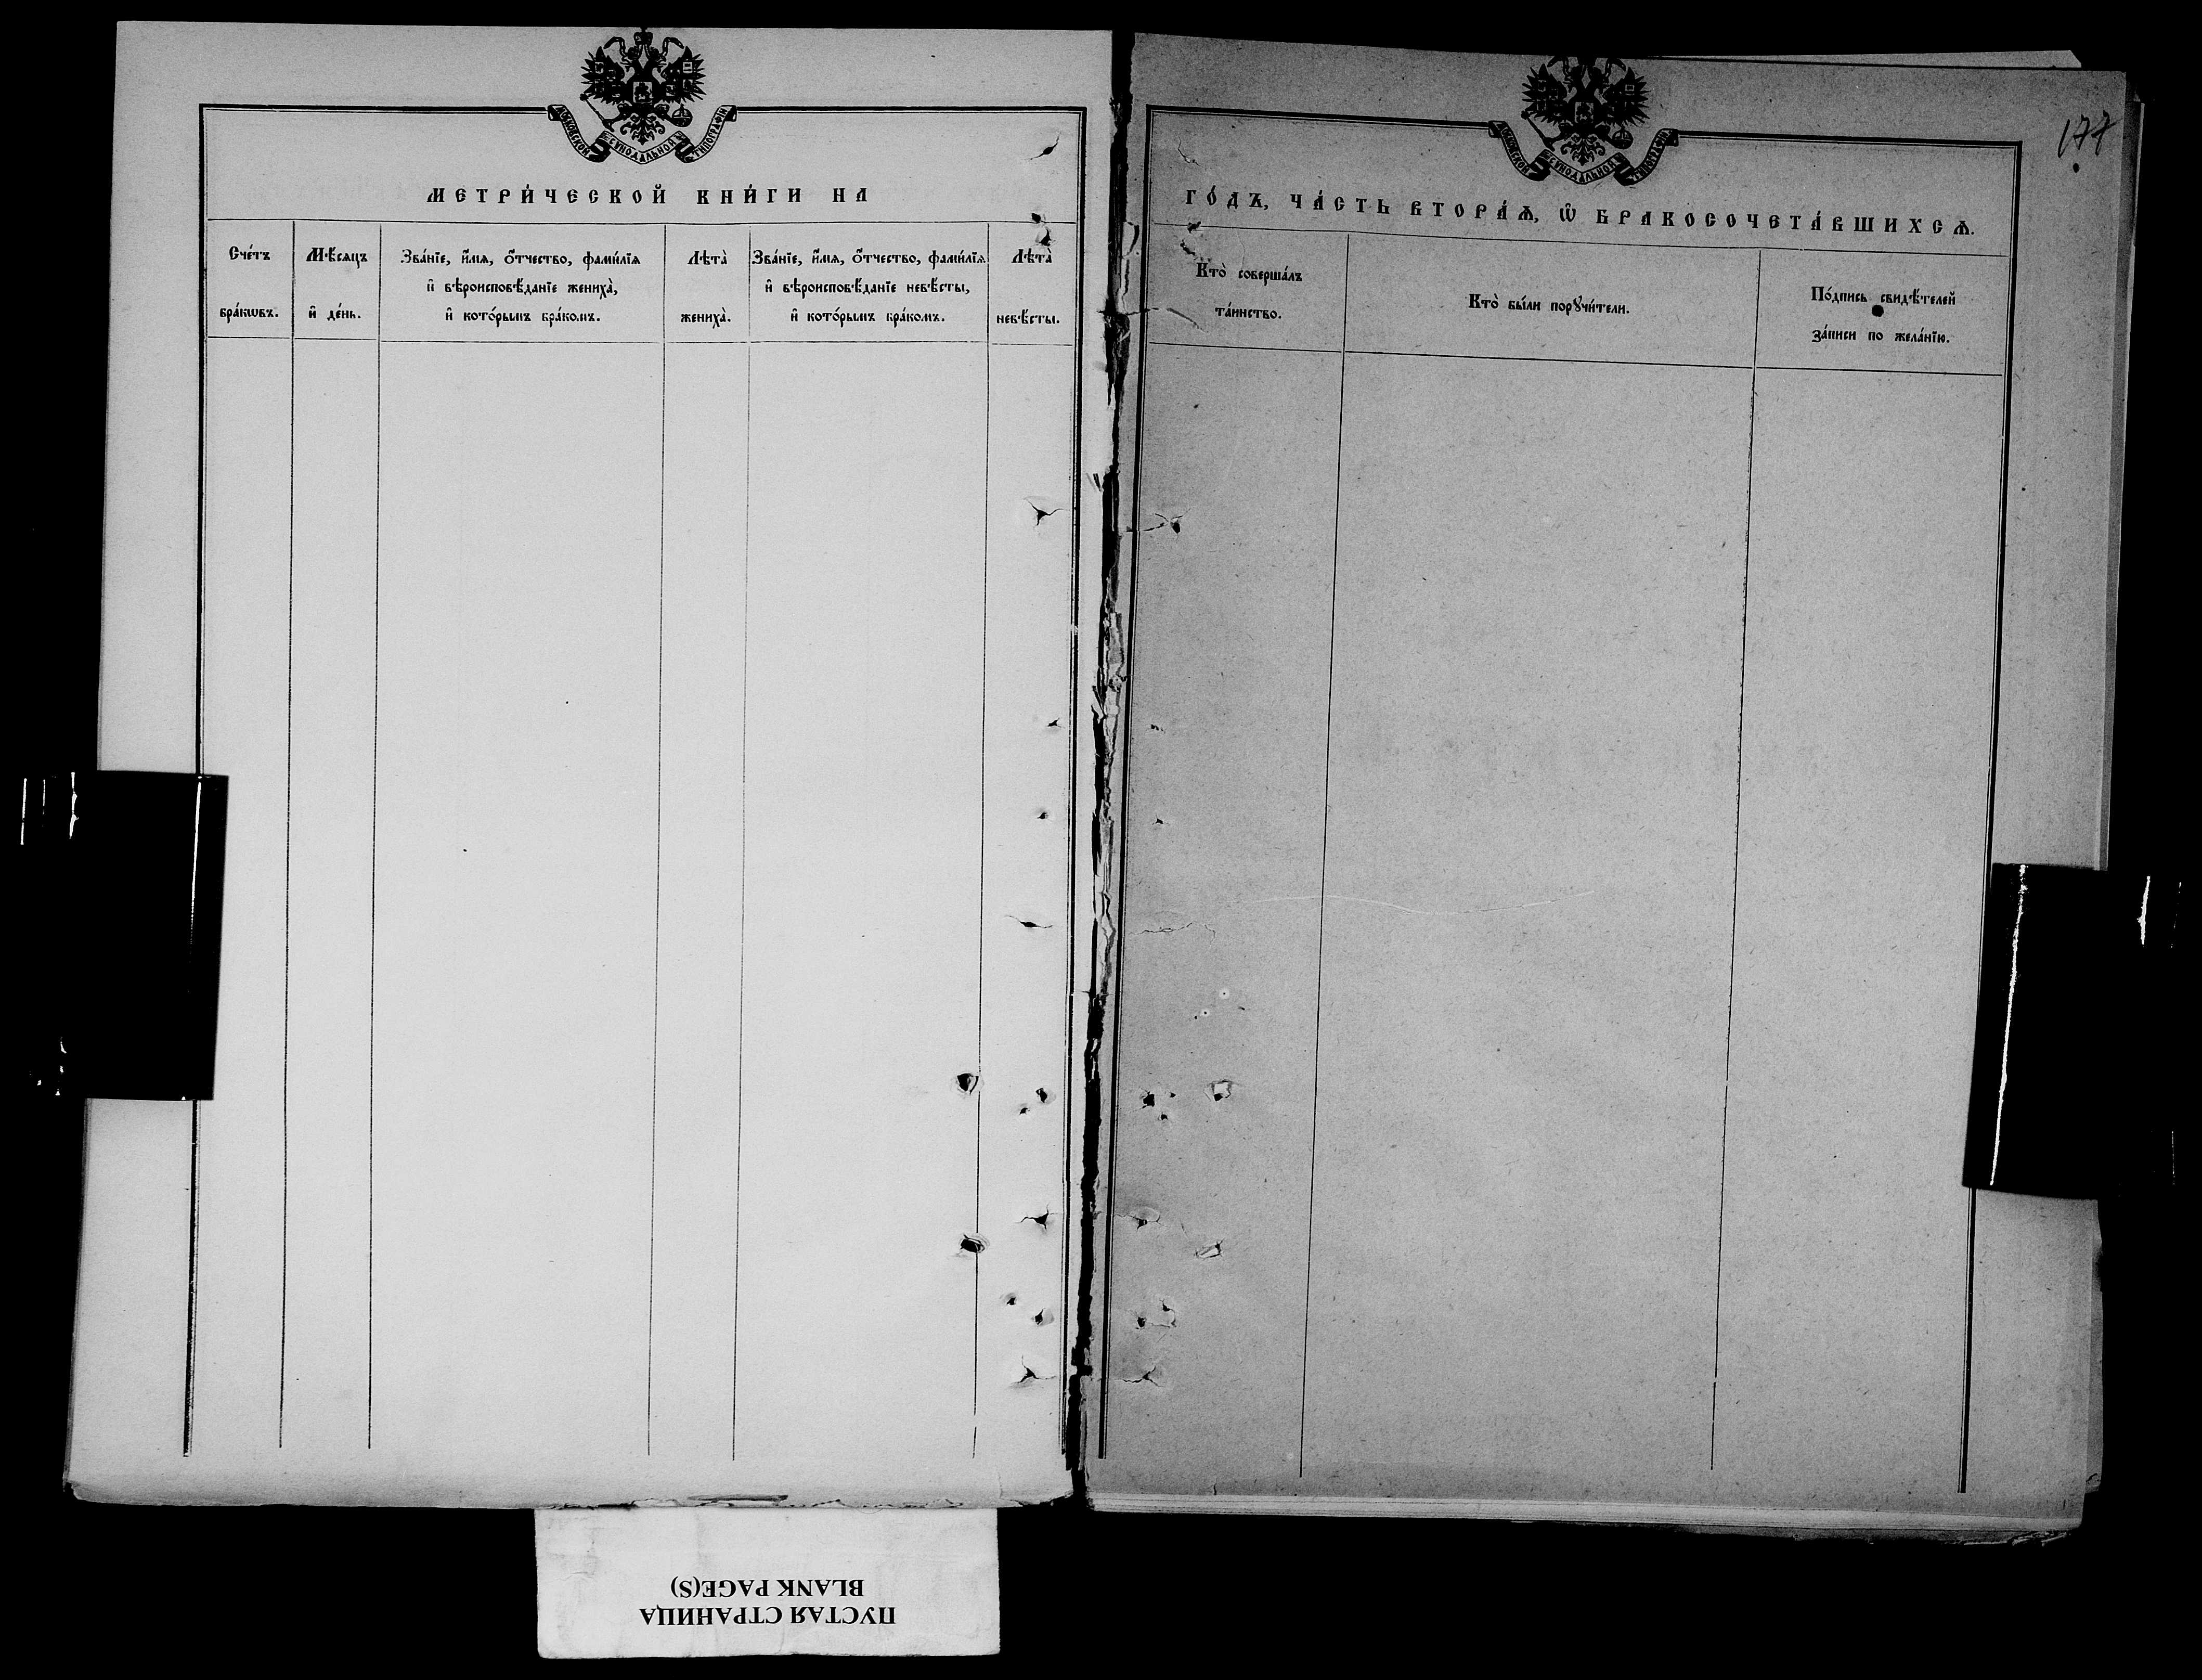 МОСКОВСКОЙ СѴНОДАЛЬНОЙ ТИПОГРАФІИ
МЕТРИ́ЧЕСКОЙ КНИ́ГИ НА
Сче́тъ
бра́кѡвъ.
Мѣ́сяцъ
и҆ де́нь.
Зва́нїе, и҆́мѧ, ѻ҆́тчество, фами́лїѧ
и҆ вѣроисповѣ́данїе женихà,
и҆ кото́рымъ бра́комъ.
Лѣтà
женихà.
Зва́нїе, и҆́мѧ, ѻ҆́тчество, фами́лїѧ
и҆ вѣроисповѣ́данїе невѣ́сты,
и҆ кото́рымъ бра́комъ.
Лѣтà
невѣ́сты.
МОСКОВСКОЙ СѴНОДАЛЬНОЙ ТИПОГРАФІИ
177
ГО́ДЪ, ЧА́СТЬ ВТОРА́Ѧ, Ѽ БРАКОСОЧЕТА́ВШИХСѦ.
Ктò соверша́лъ
та́инство.
Ктò бы́ли порꙋчи́тели.
По́дпись свидѣ́телей
за́писи по жела́нїю.
ПУСТАЯ СТРАНИЦА
BLANK PAGE(S)